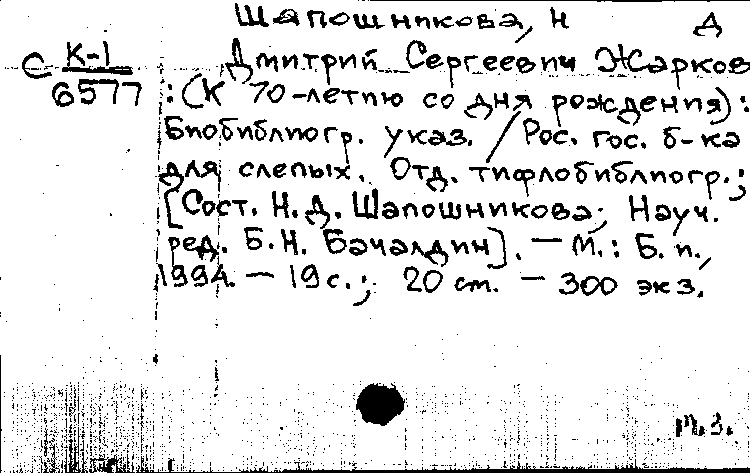 Шапошникова, Н Д
С К-1
6577
Дмитрий Сергеевич Жарков
: (К 70-летию со дня рождения) :
Биобиблиогр. указ. / Рос. гос. б-ка
для слепых. Отд. тифлобиблиогр.;
[Сост. Н.Д. Шапошникова; Науч.
ред. Б.Н. Бачалдин]. — М.: Б. и.,
1994. — 19 с.; 20 см. — 300 экз.
т.з.